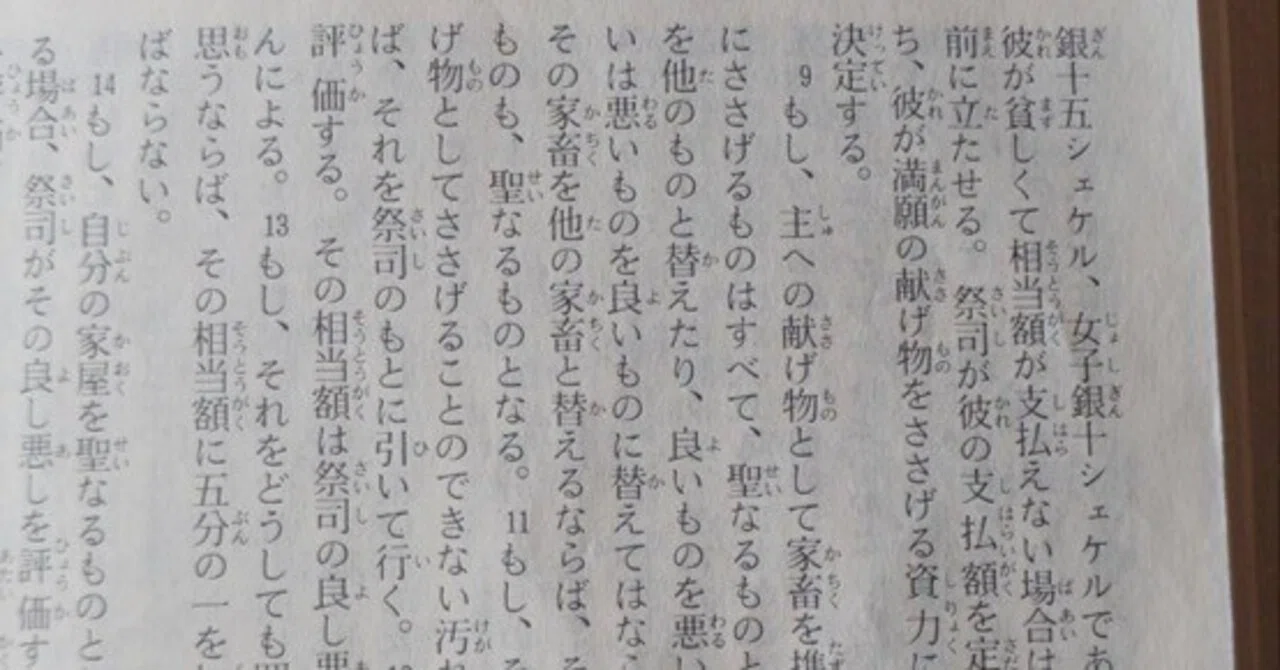 銀十五シェケル、女子銀十シェケルであ
彼が貧しくて相当額が支払えない場合は
前に立たせる。祭司が彼の支払額を定
ち、彼が満願の献げ物をささげる資力に
決定する。
9もし、主への献げ物として家畜を携
にささげるものはすべて、聖なるものと
を他のものと替えたり、良いものを悪い
いは悪いものを良いものに替えてはなら
その家畜を他の家畜と替えるならば、そ
ものも、聖なるものとなる。11もし、そ
げ物としてささげることのできない汚れ
ば、それを祭司のもとに引いて行く。12
評価する。その相当額は祭司の良し悪
んによる。13もし、それをどうしても
思うならば、その相当額に五分の一を
ばならない。
14もし、自分の家屋を聖なるものと
る場合、祭司がその良し悪しを評価す